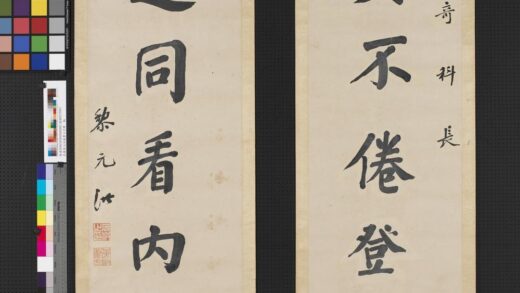 奇科長
不倦登
同看内
黎元洪